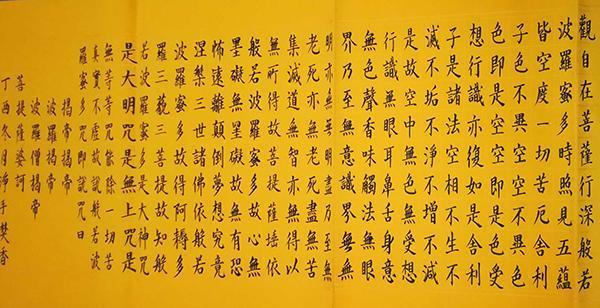 觀自在菩薩行深般若
波羅蜜多時照見五蘊
皆空度一切苦厄舍利
子色不異空空不異色
色即是空空即是色受
想行識亦復如是舍利
子是諸法空相不生不
滅不垢不淨不增不減
是故空中無色無受想
行識無眼耳鼻舌身意
無色聲香味觸法無眼
界乃至無意識界無無
明亦無無明盡乃至無
老死亦無老死盡無苦
集滅道無智亦無得以
無所得故菩提薩埵依
般若波羅蜜多故心無
罣礙無罣礙故無有恐
怖遠離顛倒夢想究竟
涅槃三世諸佛依般若
波羅蜜多故得阿耨多
羅三藐三菩提故知般
若波羅蜜多是大神咒
是大明咒是無上咒是
無等等咒能除一切苦
真實不虛故說般若波
羅蜜多咒即說咒曰
揭帝揭帝
波羅揭帝
波羅僧揭帝
菩提薩婆訶
丁酉冬月淨手焚香